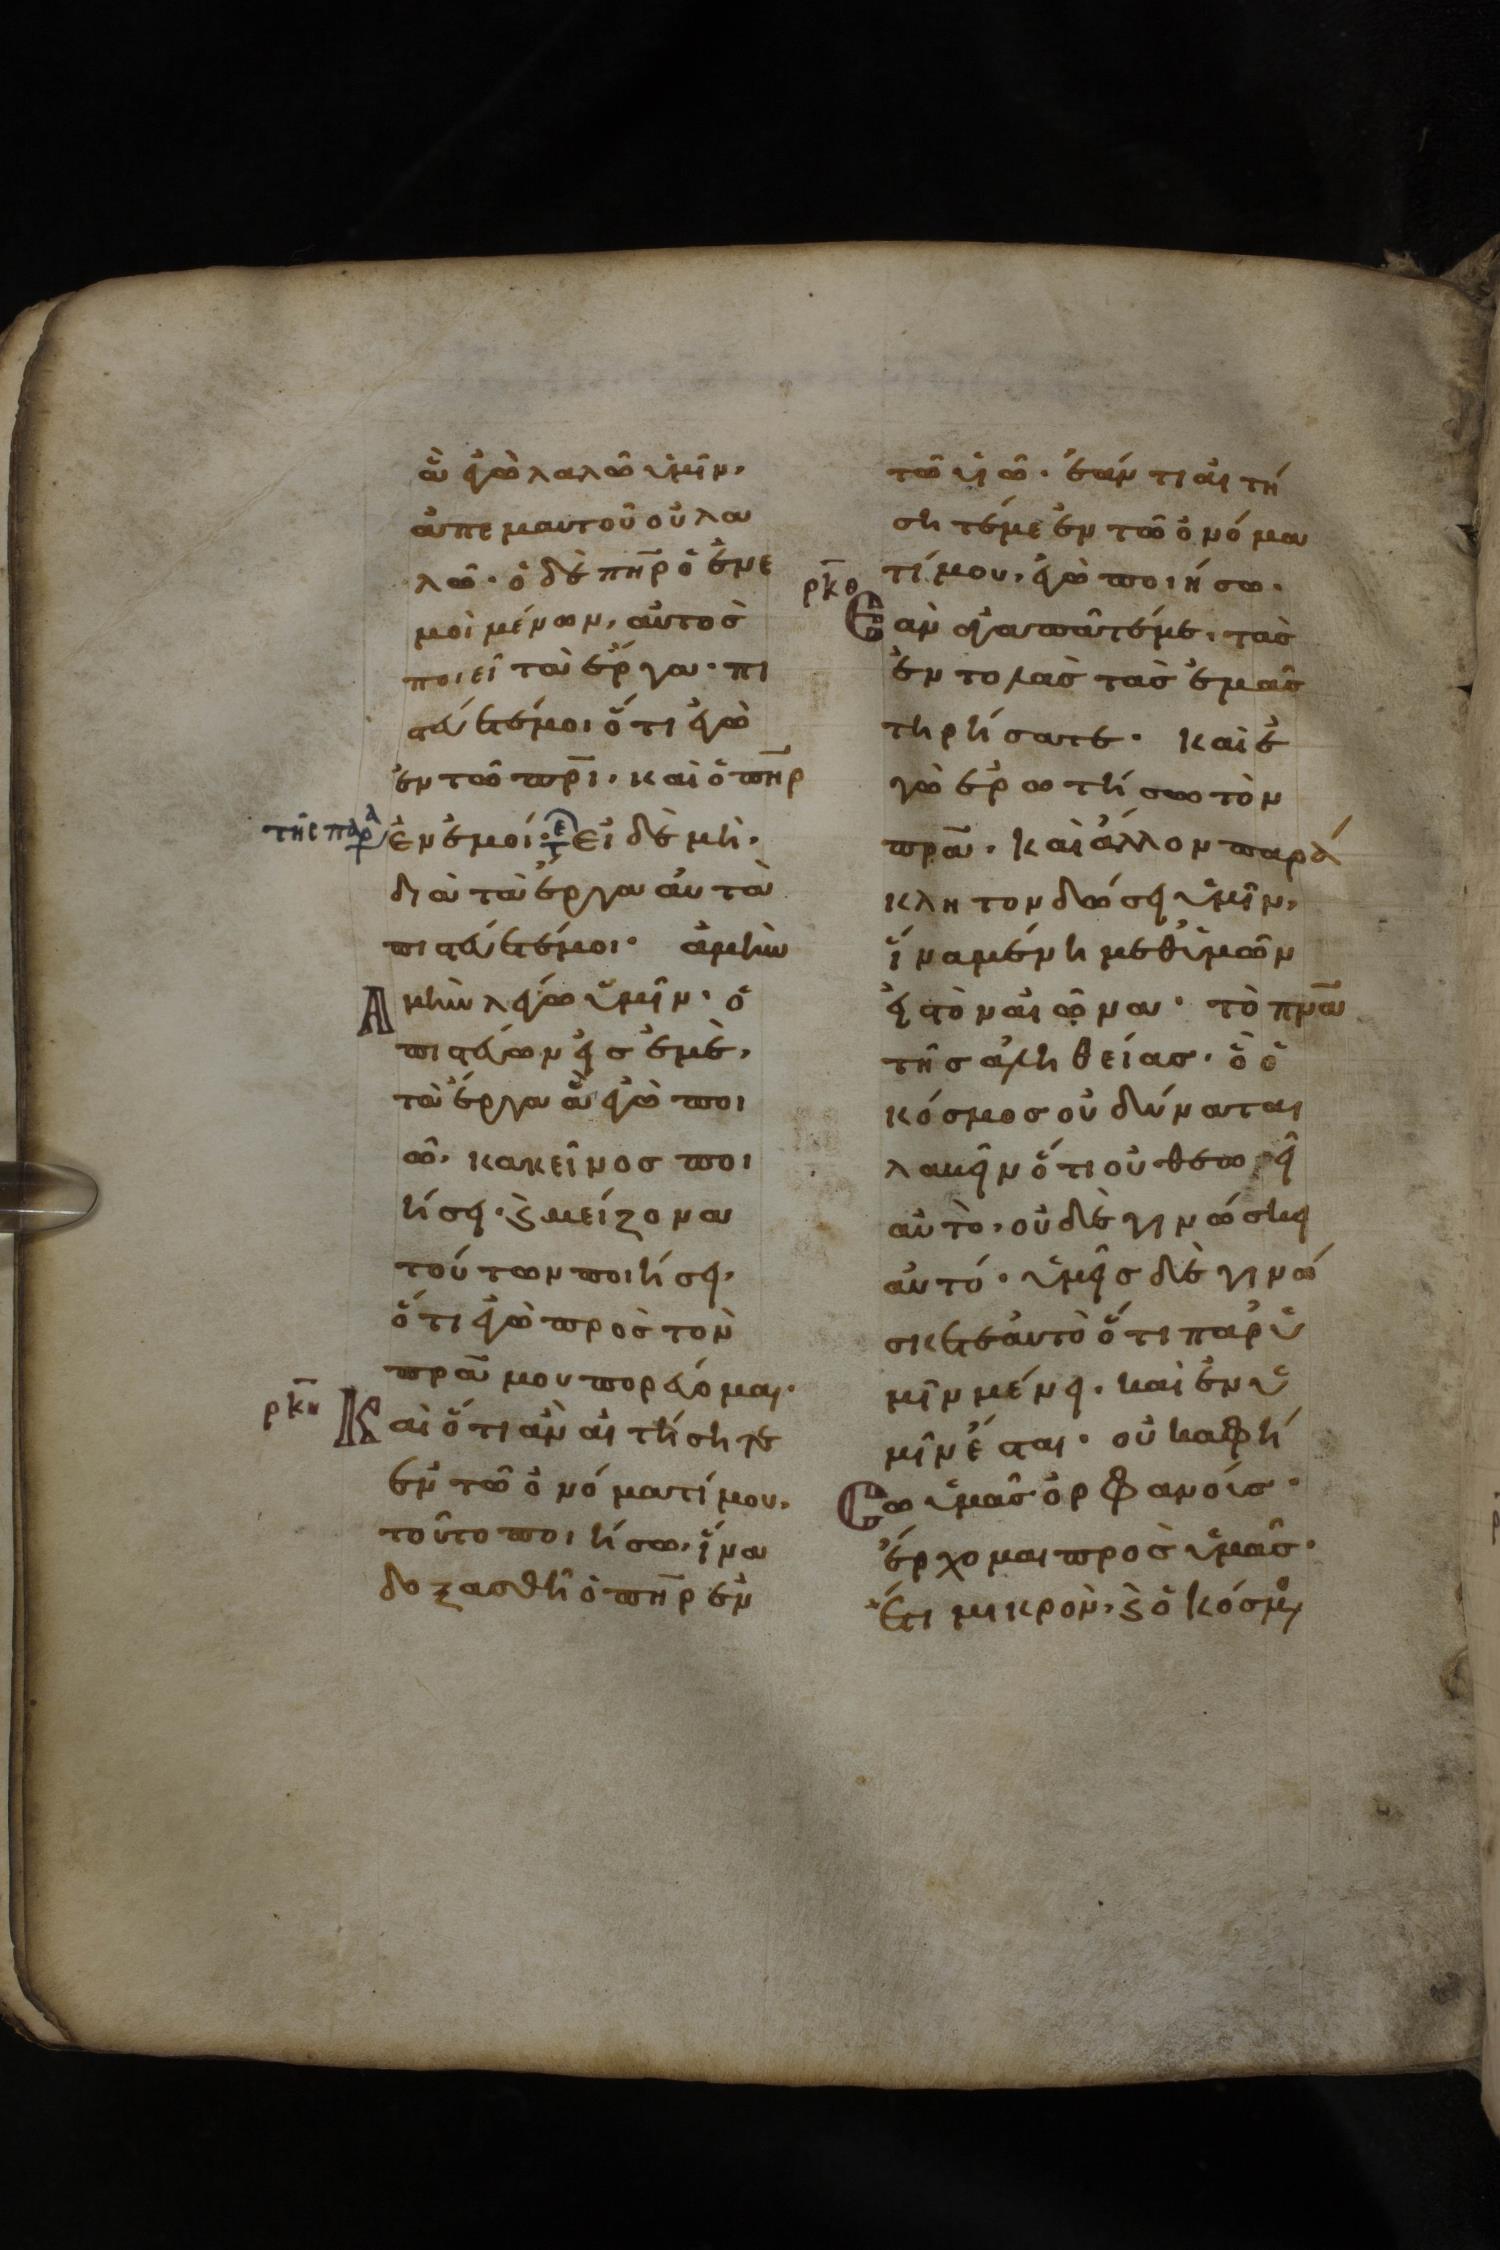 ἃ ἐγὼ λαλῶ ὑμῖν,
ἀπεμαυτοῦ οὐ λα
λῶ· ὁ δὲ πη̅ρ ὁ ἐν ε
μοὶ μένων, αὐτὸσ
ποιεῖ τὰ ἔργα· πι
στεύετέ μοι ὅτι ἐγὼ
ἐν τῶ πρ̅ι, καὶ ὁ πη̅ρ
τῆς παρα ἐν ἐμοί· τε εἰ δὲ μὴ,
διὰ τὰ ἔργα αὐτὰ
πιστεύετέ μοι· ἀμὴν
Ἀμὴν λέγω ὑμῖν· ὁ
πιστεύων εἰσ ἐμὲ,
τὰ ἔργα ἃ ἐγὼ ποι
ῶ, κακεῖνοσ ποι
ήσει· ϗ μείζονα
τούτων ποιήσει,
ὅτι ἐγὼ πρὸσ τὸν
πρ̅α μου πορεύομαι·
ρκη Καὶ ὅτι ἂν αἰτήσητε
ἐν τῶ ὀνόματί μου,
τοῦτο ποιήσω, ἵνα
δοξασθῆ ὁ πη̅ρ ἐν
τῶ υἱῶ· ἐάν τι αἰτή
σητέ με ἐν τῶ ὀνόμα
τί μου, ἐγὼ ποιήσω·
ρκθ Ἐὰν ἀγαπᾶτέ με, τὰσ
ἐντολὰσ τὰσ ἐμὰσ
τηρήσατε· καὶ ἐ
γὼ ἐρωτήσω τὸν
πρ̅α· καὶ ἄλλον παρά
κλητον δώσει ὑμῖν,
ἵνα μένη μεθ' ὑμῶν
εἰς τὸν αἰῶνα· τὸ πν̅α
τῆσ ἀληθείασ· ὃ ὁ
κόσμοσ οὐ δύναται
λαβεῖν ὅτι οὐ θεωρεῖ
αὐτὸ, οὐδὲ γινώσκει
αὐτό· ὑμεῖσ δὲ γινώ
σκετε αὐτὸ ὅτι παρ' ὑ
μῖν μένει, καὶ ἐν ὑ
μῖν ἔσται· οὐκ ἀφή
Σω ὑμᾶσ ὀρφανούσ·
ἔρχομαι πρὸσ ὑμᾶσ·
Ἔτι μικρὸν, ϗ ὁ κόσμος